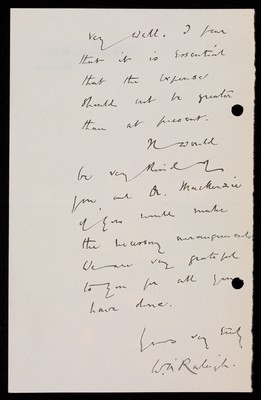 very well. I fear
that it is essential
that the expense
should not be greater
than at present.
It would
be very kind of
you and Dr. MacKenzie
if you would make
the necessary arrangements
We are very grateful
to you for all you
have done.
Yours very truly
W. Raleigh.